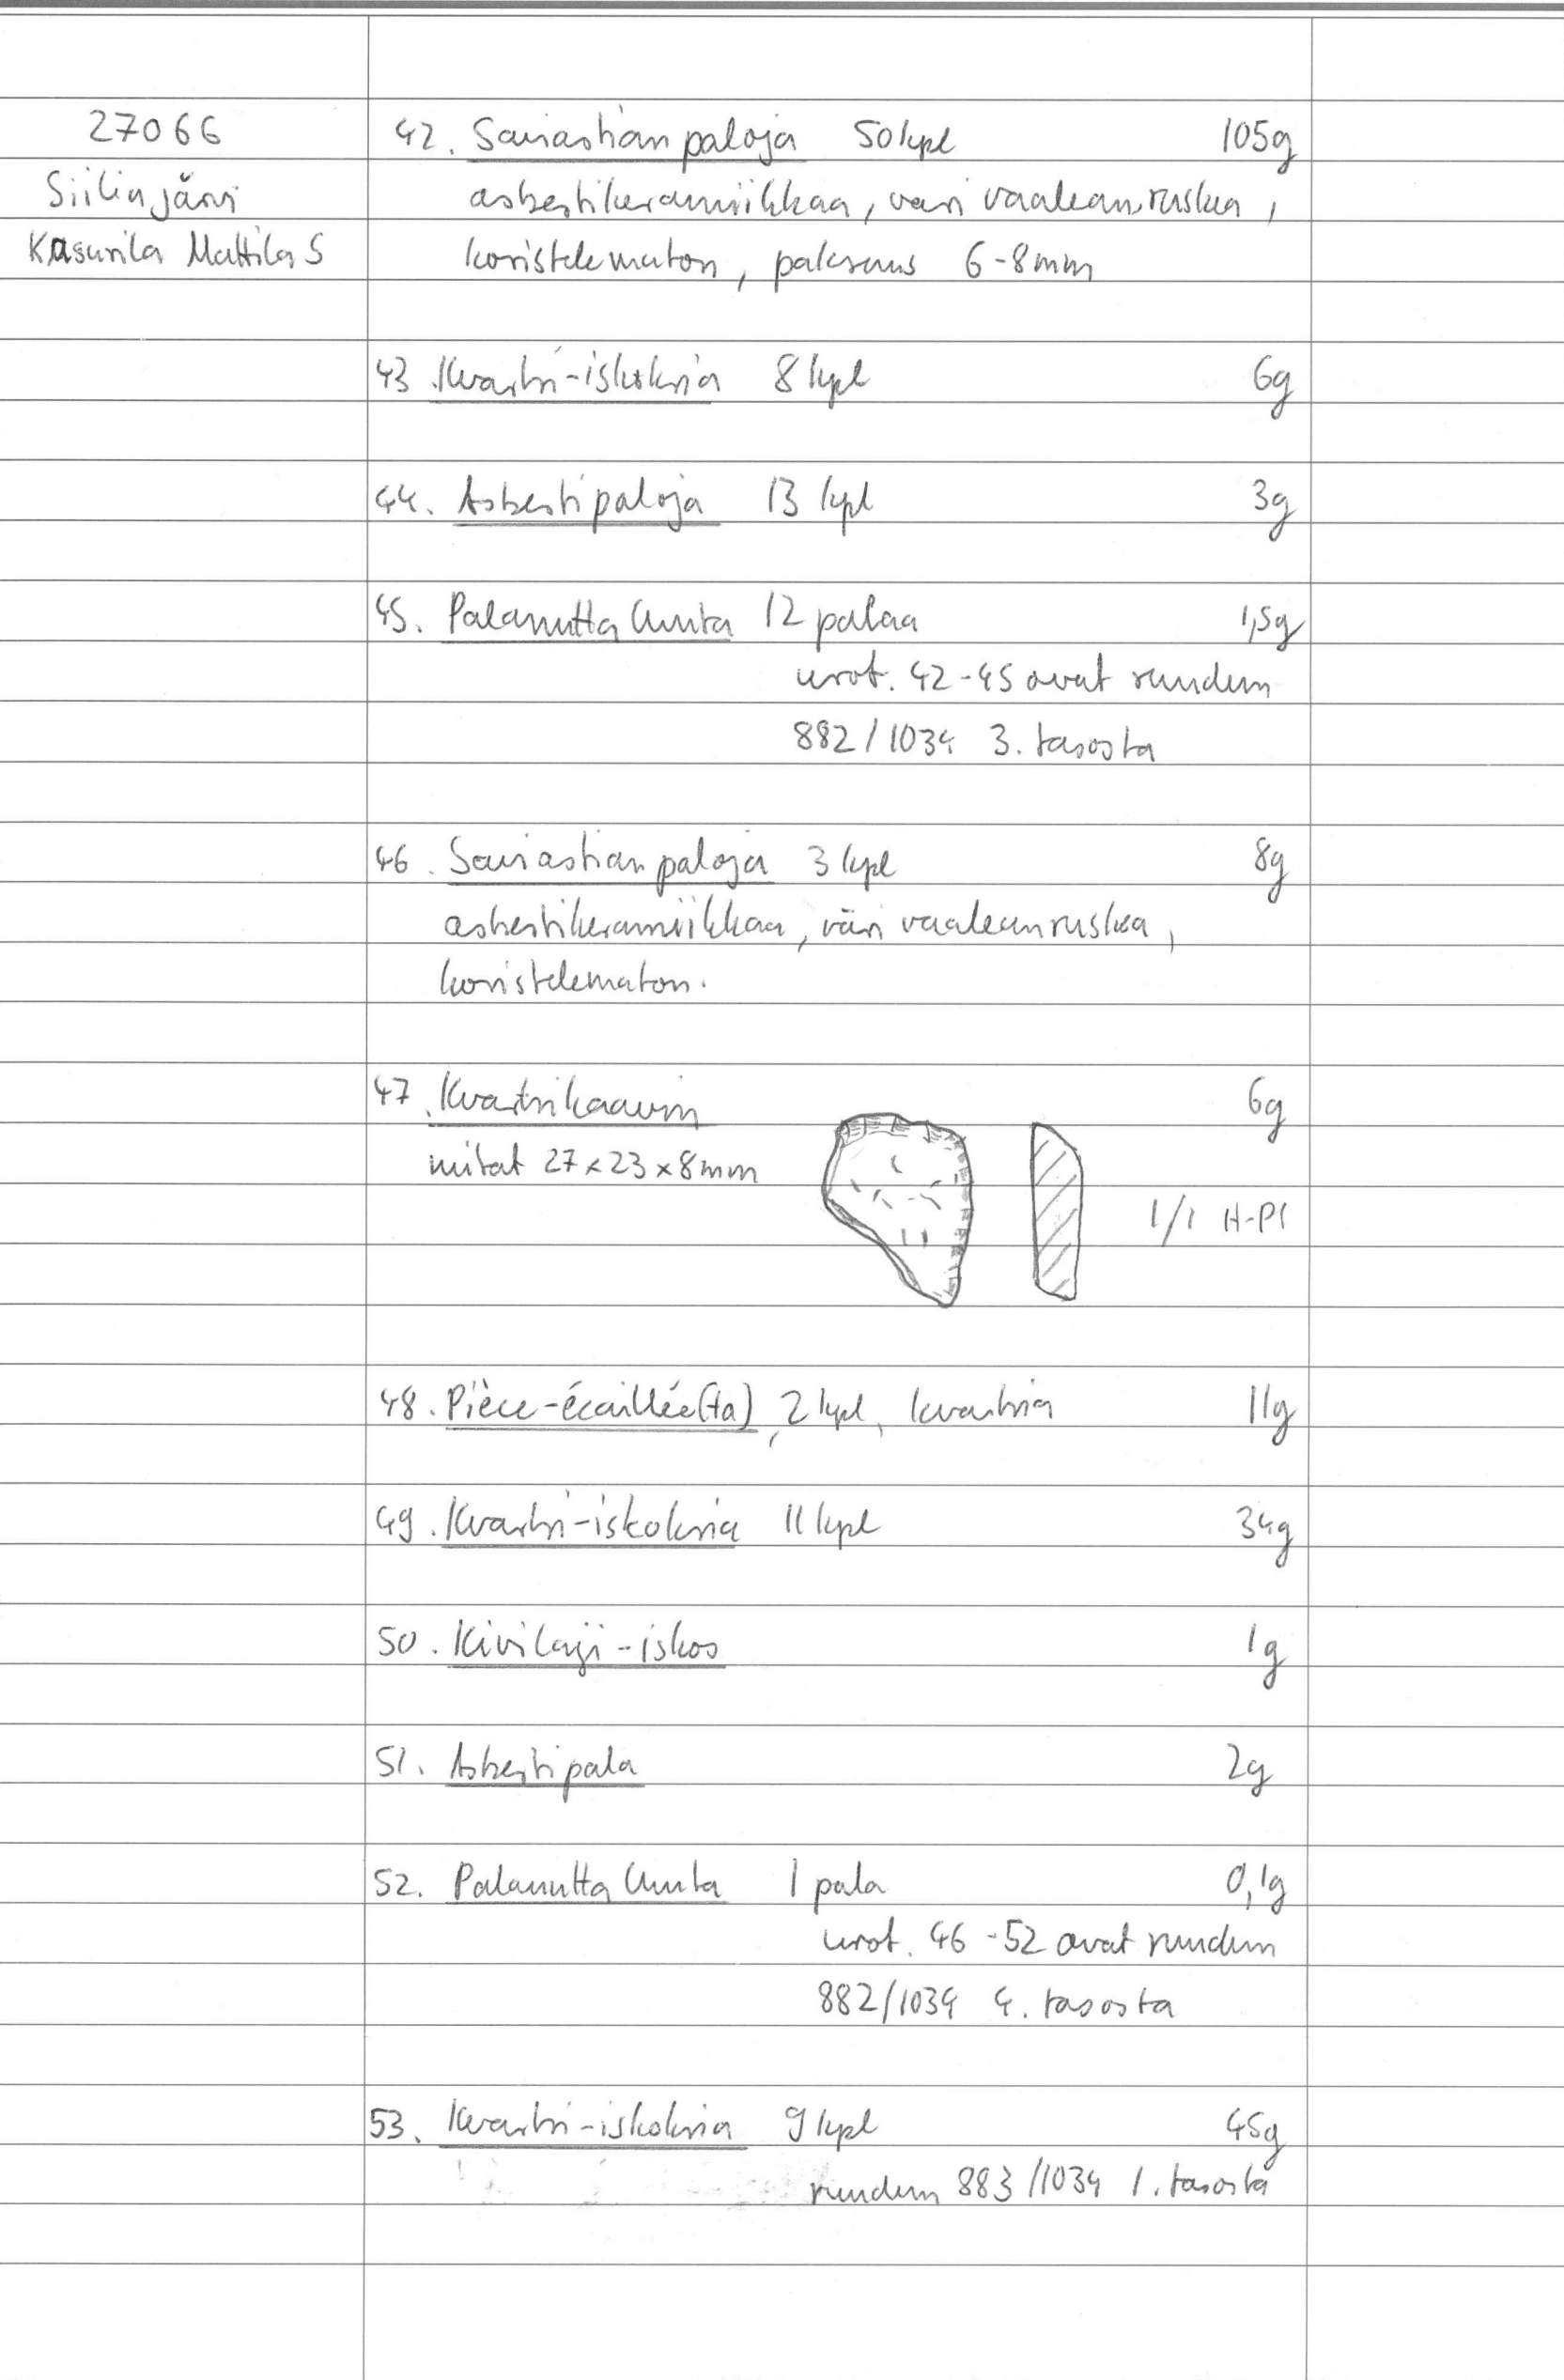 27066
Siilinjärvi
Kasurila Mattila S
42. Saviastian paloja 50 kpl 105g
asbestikeramiikkaa, väri vaaleanruskea,
koristelematon, paksuus 6-8mm
43. Kvartsi-iskoksia 8 kpl 6g
44. Asbestipaloja 13 kpl 3g
45. Palanutta luuta 12 palaa 1,5g
nrot. 42-45 ovat ruudun
882/1034 3. tasosta
46. Saviastian paloja 3 kpl 8g
asbestikeramiikkaa, väri vaaleanruskea,
koristelematon.
47. Kvartsikaavin 6g
mitat 27x23x8mm
1/1 H-P1
48. Pièce-écaillée(ta), 2 kpl, kvartsia 11g
49. Kvartsi-iskoksia 11 kpl 34g
50. Kivilaji-iskos 1g
51. Asbestipala 2g
52. Palanutta luuta 1 pala 0,1g
nrot. 46-52 ovat ruudun
882/1034 4. tasosta
53. Kvartsi-iskoksia 9 kpl 45g
ruudun 883/1034 1. tasosta